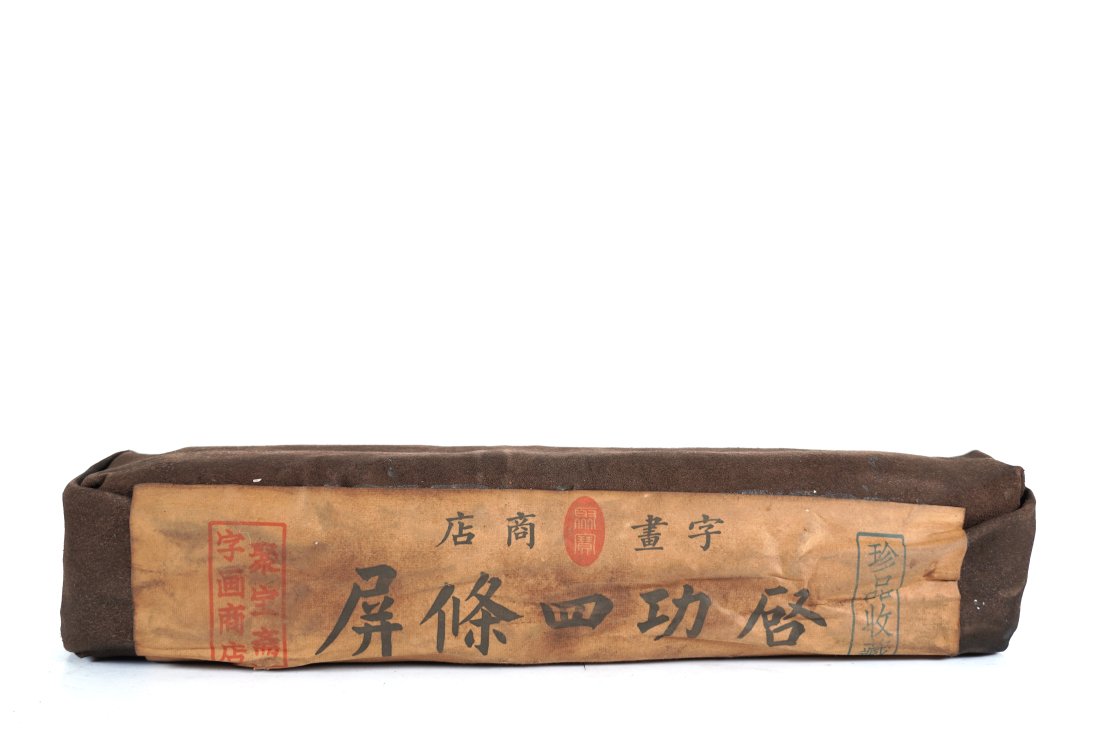 字畫商店
啓功四條屏
珍品收藏
聚宝斋
字画商店